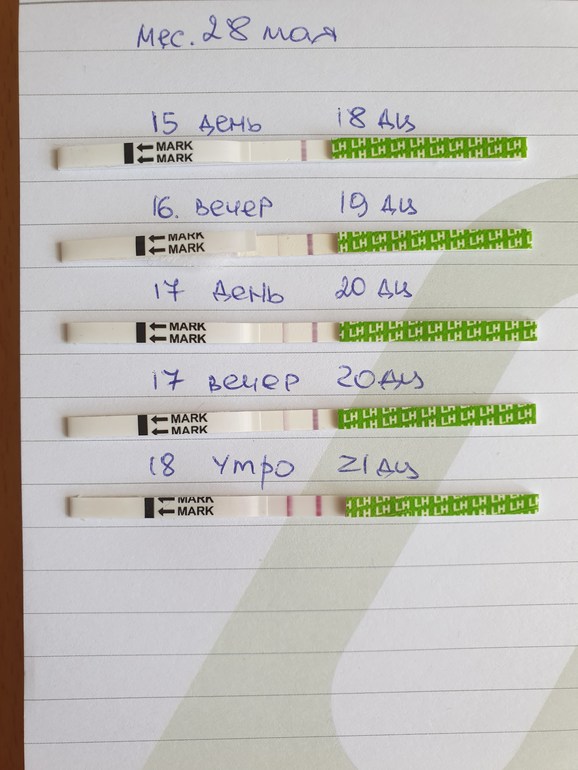 мес. 28 мая
15 день 18 дц
MARK
MARK
LH LH LH LH LH LH LH LH
LH LH LH LH LH LH LH
16. вечер 19 дц
MARK
MARK
LH LH LH LH LH LH LH LH
LH LH LH LH LH LH LH
17 день 20 дц
MARK
MARK
LH LH LH LH LH LH LH LH
LH LH LH LH LH LH LH
17 вечер 20 дц
MARK
MARK
LH LH LH LH LH LH LH LH
LH LH LH LH LH LH LH
18 утро 21 дц
MARK
MARK
LH LH LH LH LH LH LH LH
LH LH LH LH LH LH LH